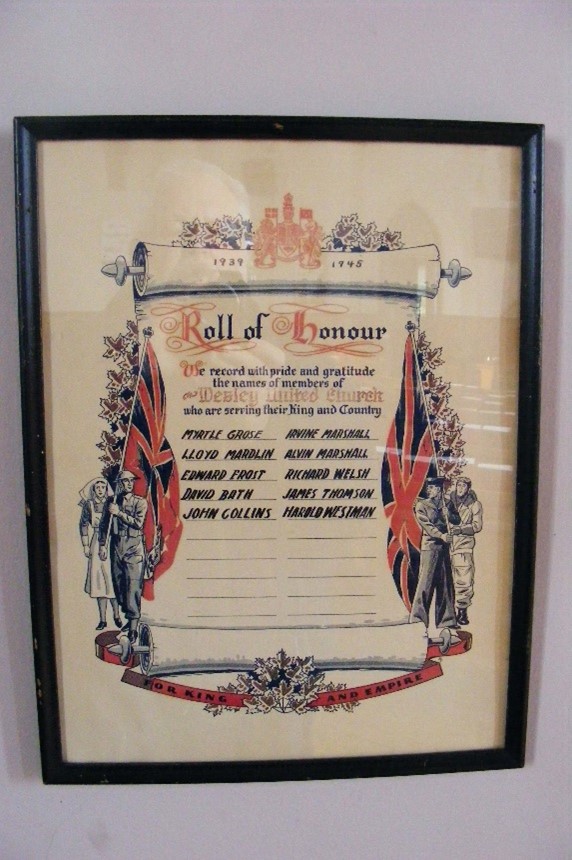 1939 1945
Roll of Honour
We record with pride and gratitude
the names of members of
Wesley United Church
who are serving their King and Country
MYRTLE GROSE IRVINE MARSHALL
LLOYD MARDLIN ALVIN MARSHALL
EDWARD FROST RICHARD WELSH
DAVID BATH JAMES THOMSON
JOHN COLLINS HAROLD WESTMAN
FOR KING AND EMPIRE